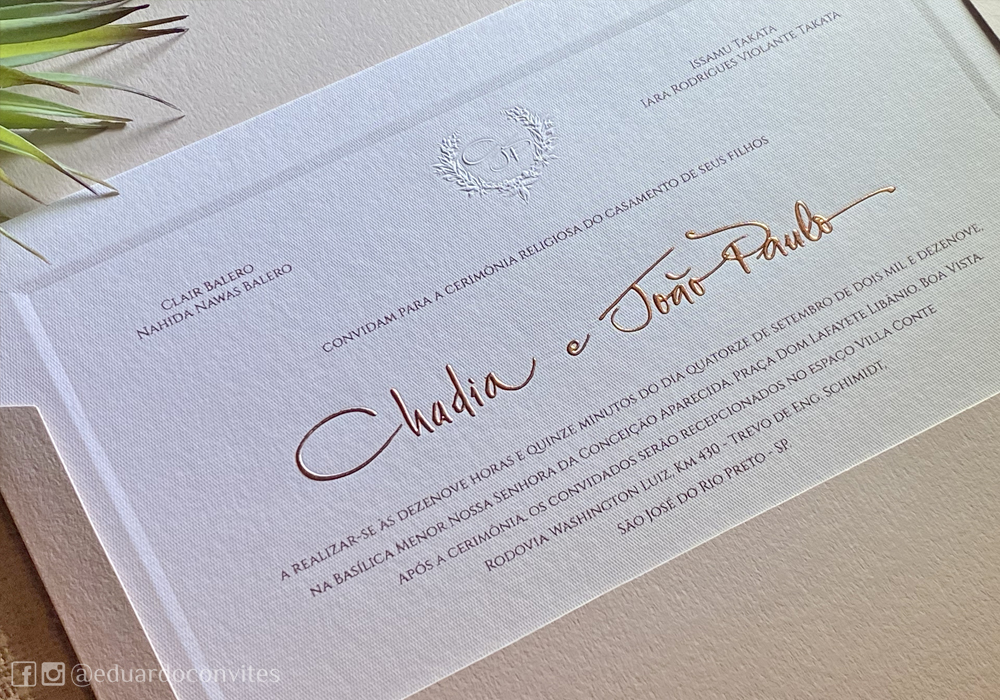 Clair Balero
Nahida Nawas Balero
Issamu Takata
Iara Rodrigues Violante Takata
convidam para a cerimônia religiosa do casamento de seus filhos
Chadia e João Paulo
a realizar-se às dezenove horas e quinze minutos do dia quatorze de setembro de dois mil e dezenove,
na Basílica Menor Nossa Senhora da Conceição Aparecida, Praça Dom Lafayete Libânio, Boa Vista.
Após a cerimônia, os convidados serão recepcionados no Espaço Villa Conte
Rodovia Washington Luiz, Km 430 - Trevo de Eng. Schimidt,
São José do Rio Preto - SP.
@eduardoconvites